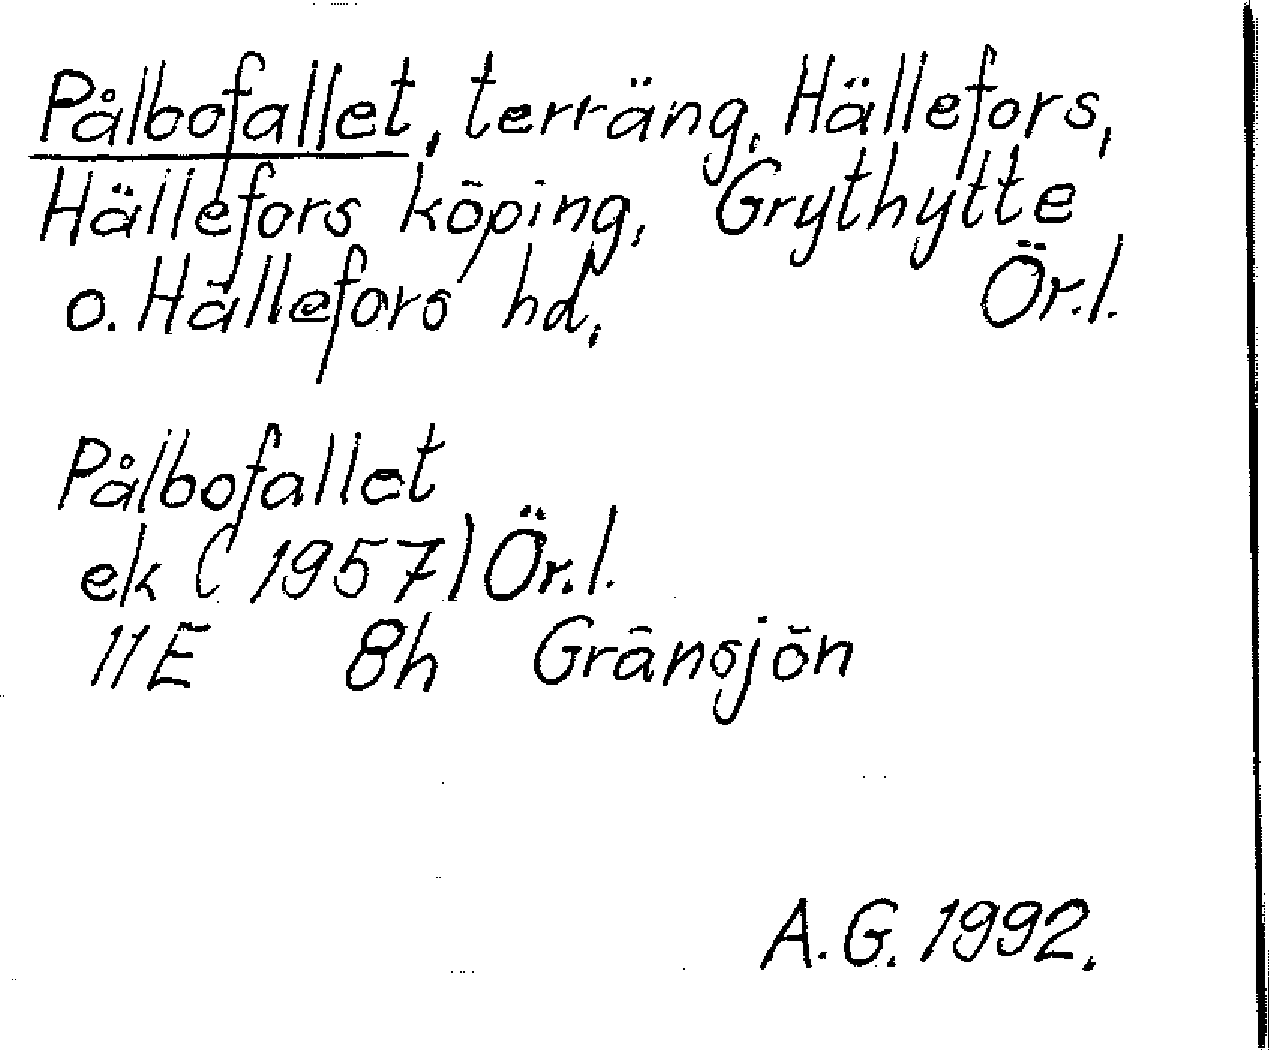 Pålbofallet, terräng, Hällefors,
Hällefors köping, Grythytte
o. Hällefors hd, Ör.l.
Pålbofallet
ek (1957) Ör.l.
11E 8h Gränsjön
A.G. 1992.